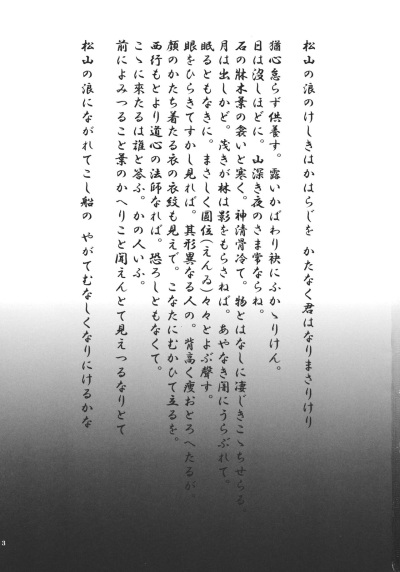 松山の浪のけしきはかはらじを かたなく君はなりまさりけり
猶心怠らず供養す。露いかばかり袂にふかゝりけん。
日は沒しほどに。山深き夜のさま常ならね。
石の牀木葉の衾いと寒く。神清骨冷て。物とはなしに凄じきこゝちせらる。
月は出しかど。茂きが林は影をもらさねば。あやなき闇にうらぶれて。
眠るともなきに。まさしく圓位(えんゐ)々々とよぶ聲す。
眼をひらきてすかし見れば。其形異なる人の。背高く痩おとろへたるが。
顔のかたち着たる衣の衣紋も見えで。こなたにむかひて立るを。
西行もとより道心の法師なれば。恐ろしともなくて。
こゝに來たるは誰と答ふ。かの人いふ。
前によみつること葉のかへりこと聞えんとて見えつるなりとて
松山の浪にながれてこし船の やがてむなしくなりにけるかな
3